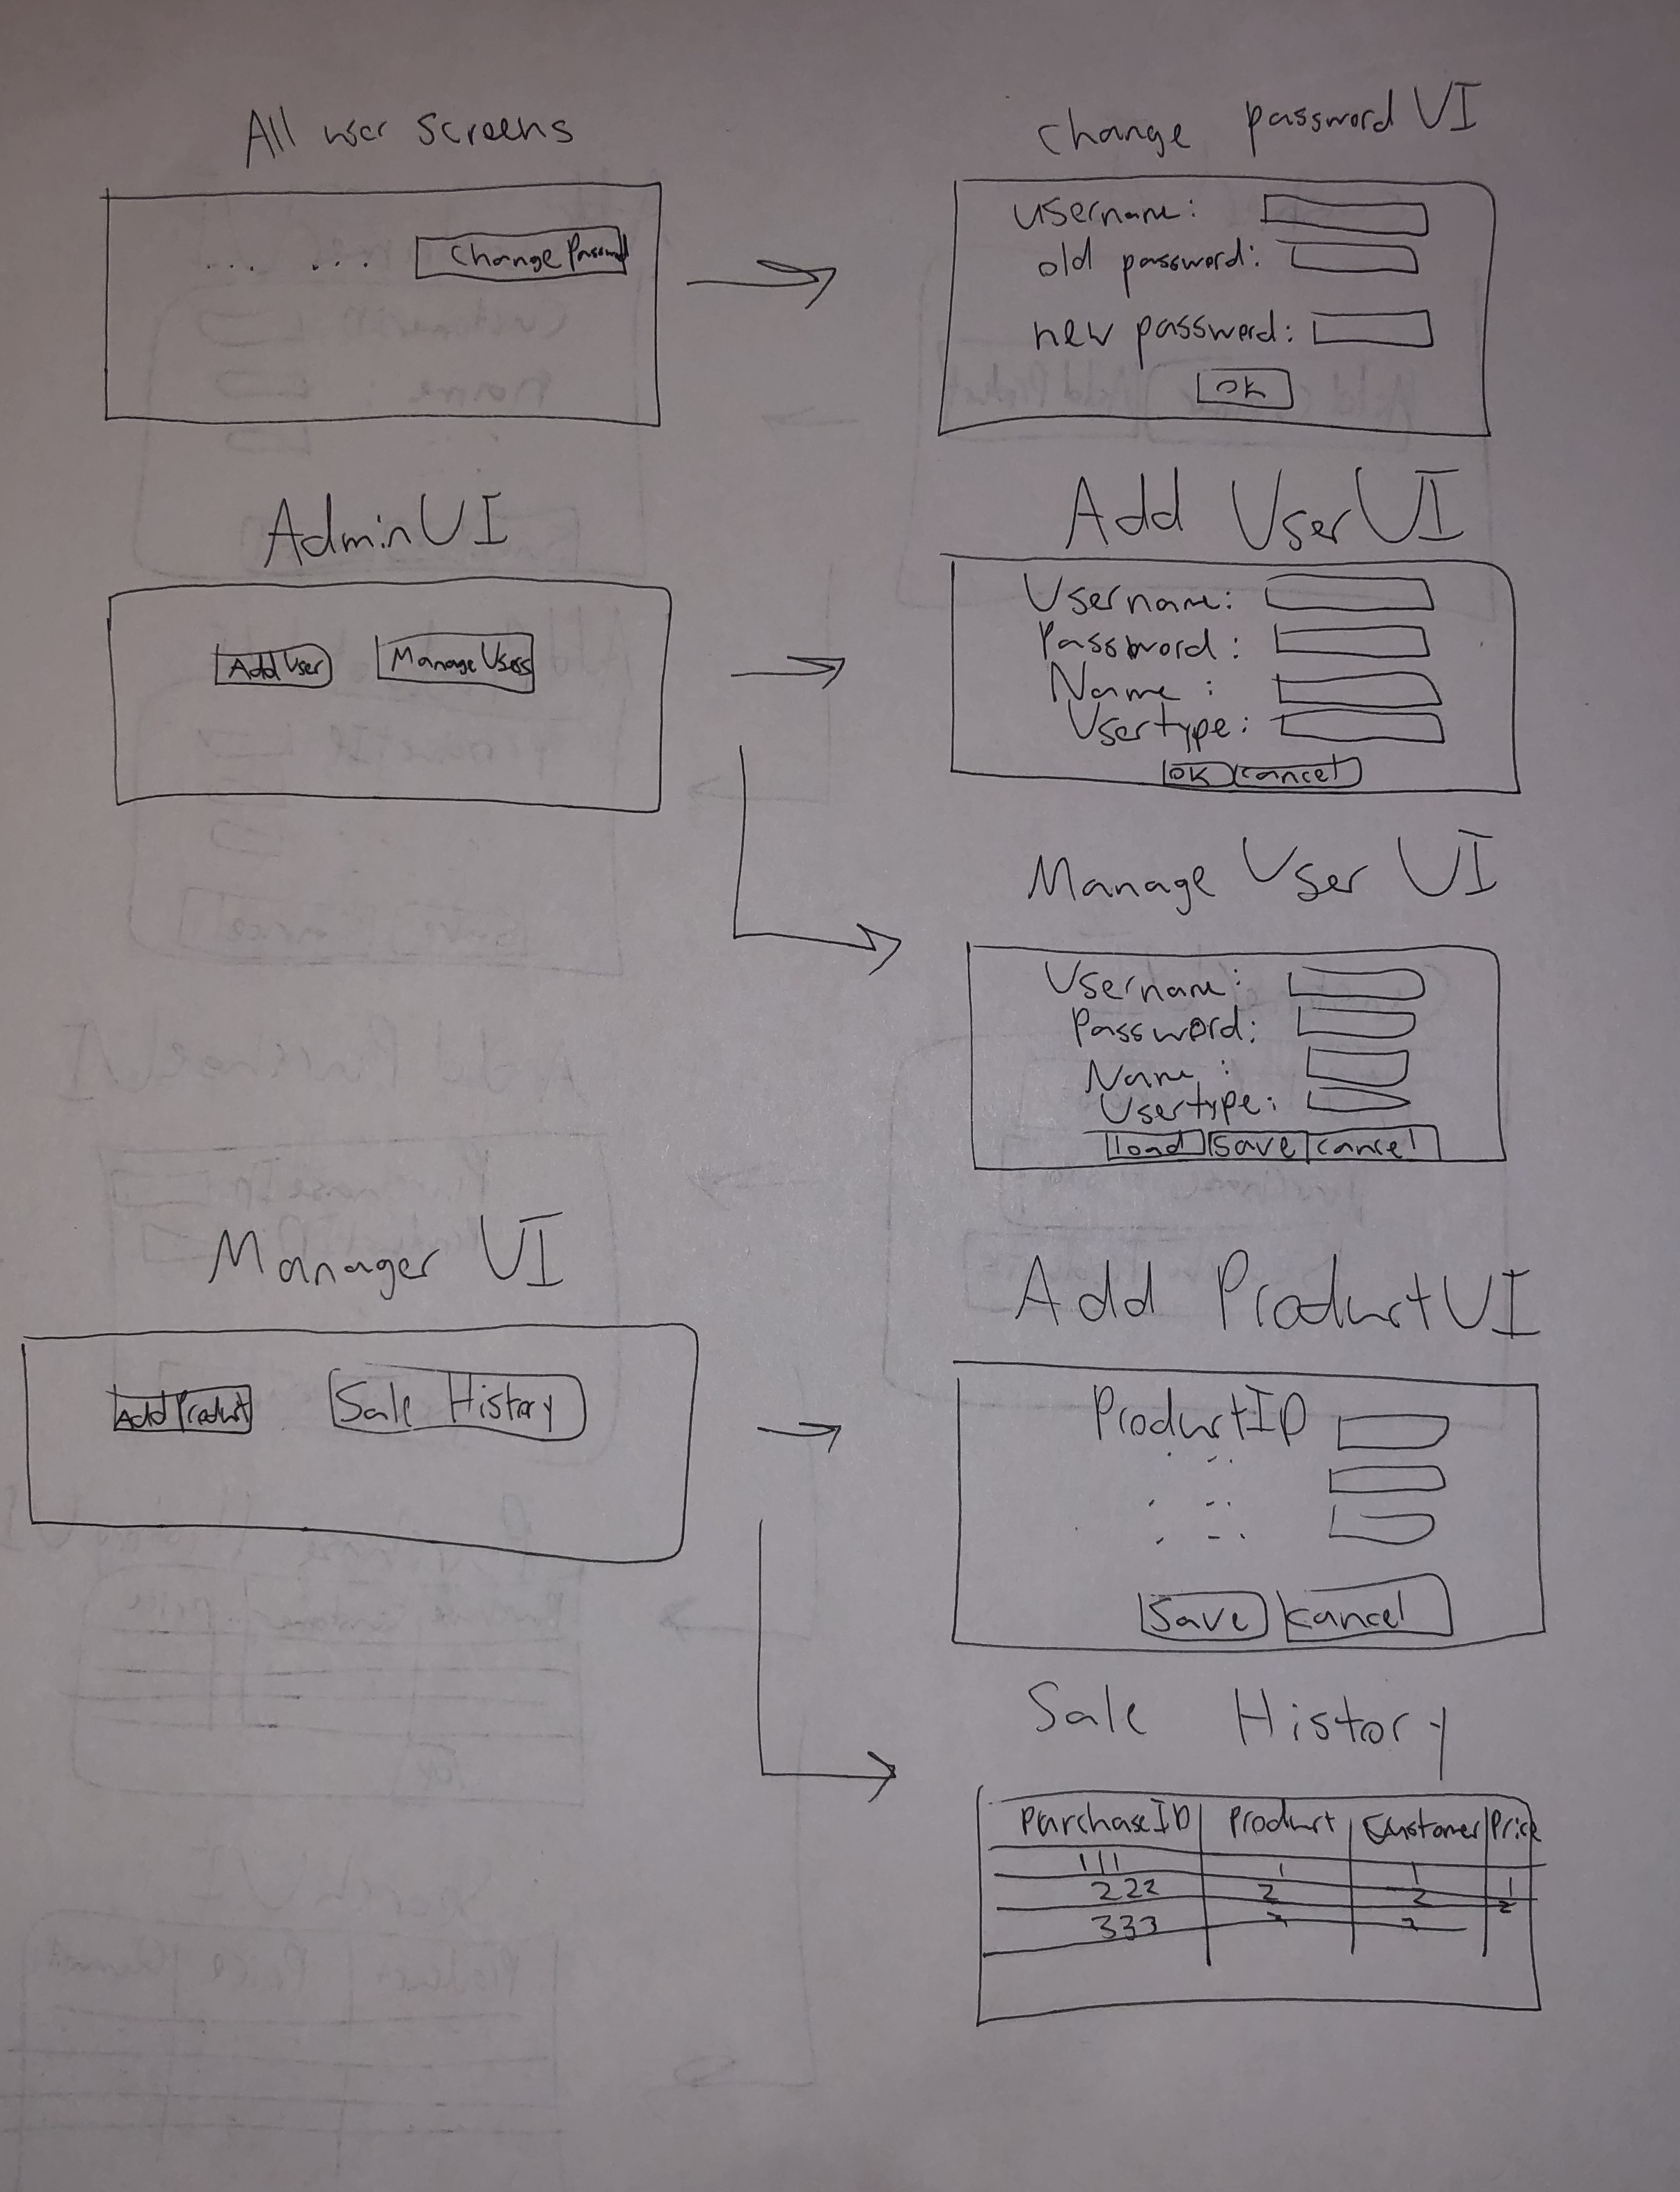 All user screens
... ... Change Password
Change password UI
username:
old password:
new password:
OK
Admin UI
Add User Manage Users
Add User UI
Username:
Password:
Name :
Usertype:
OK cancel
Manage User UI
Username:
Password:
Name :
Usertype:
load save cancel
Manager UI
Add Product Sale History
Add Product UI
ProductID
Save cancel
Sale History
PurchaseID Product Customer Price
111 1 1 1
222 2 2 2
333